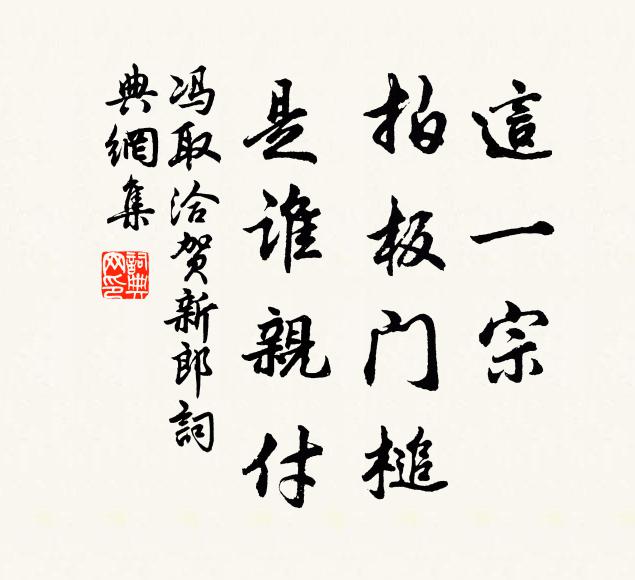 這一宗
拍板门槌
是谁親付
冯取洽贺新郎詞
典網集
詞典网印